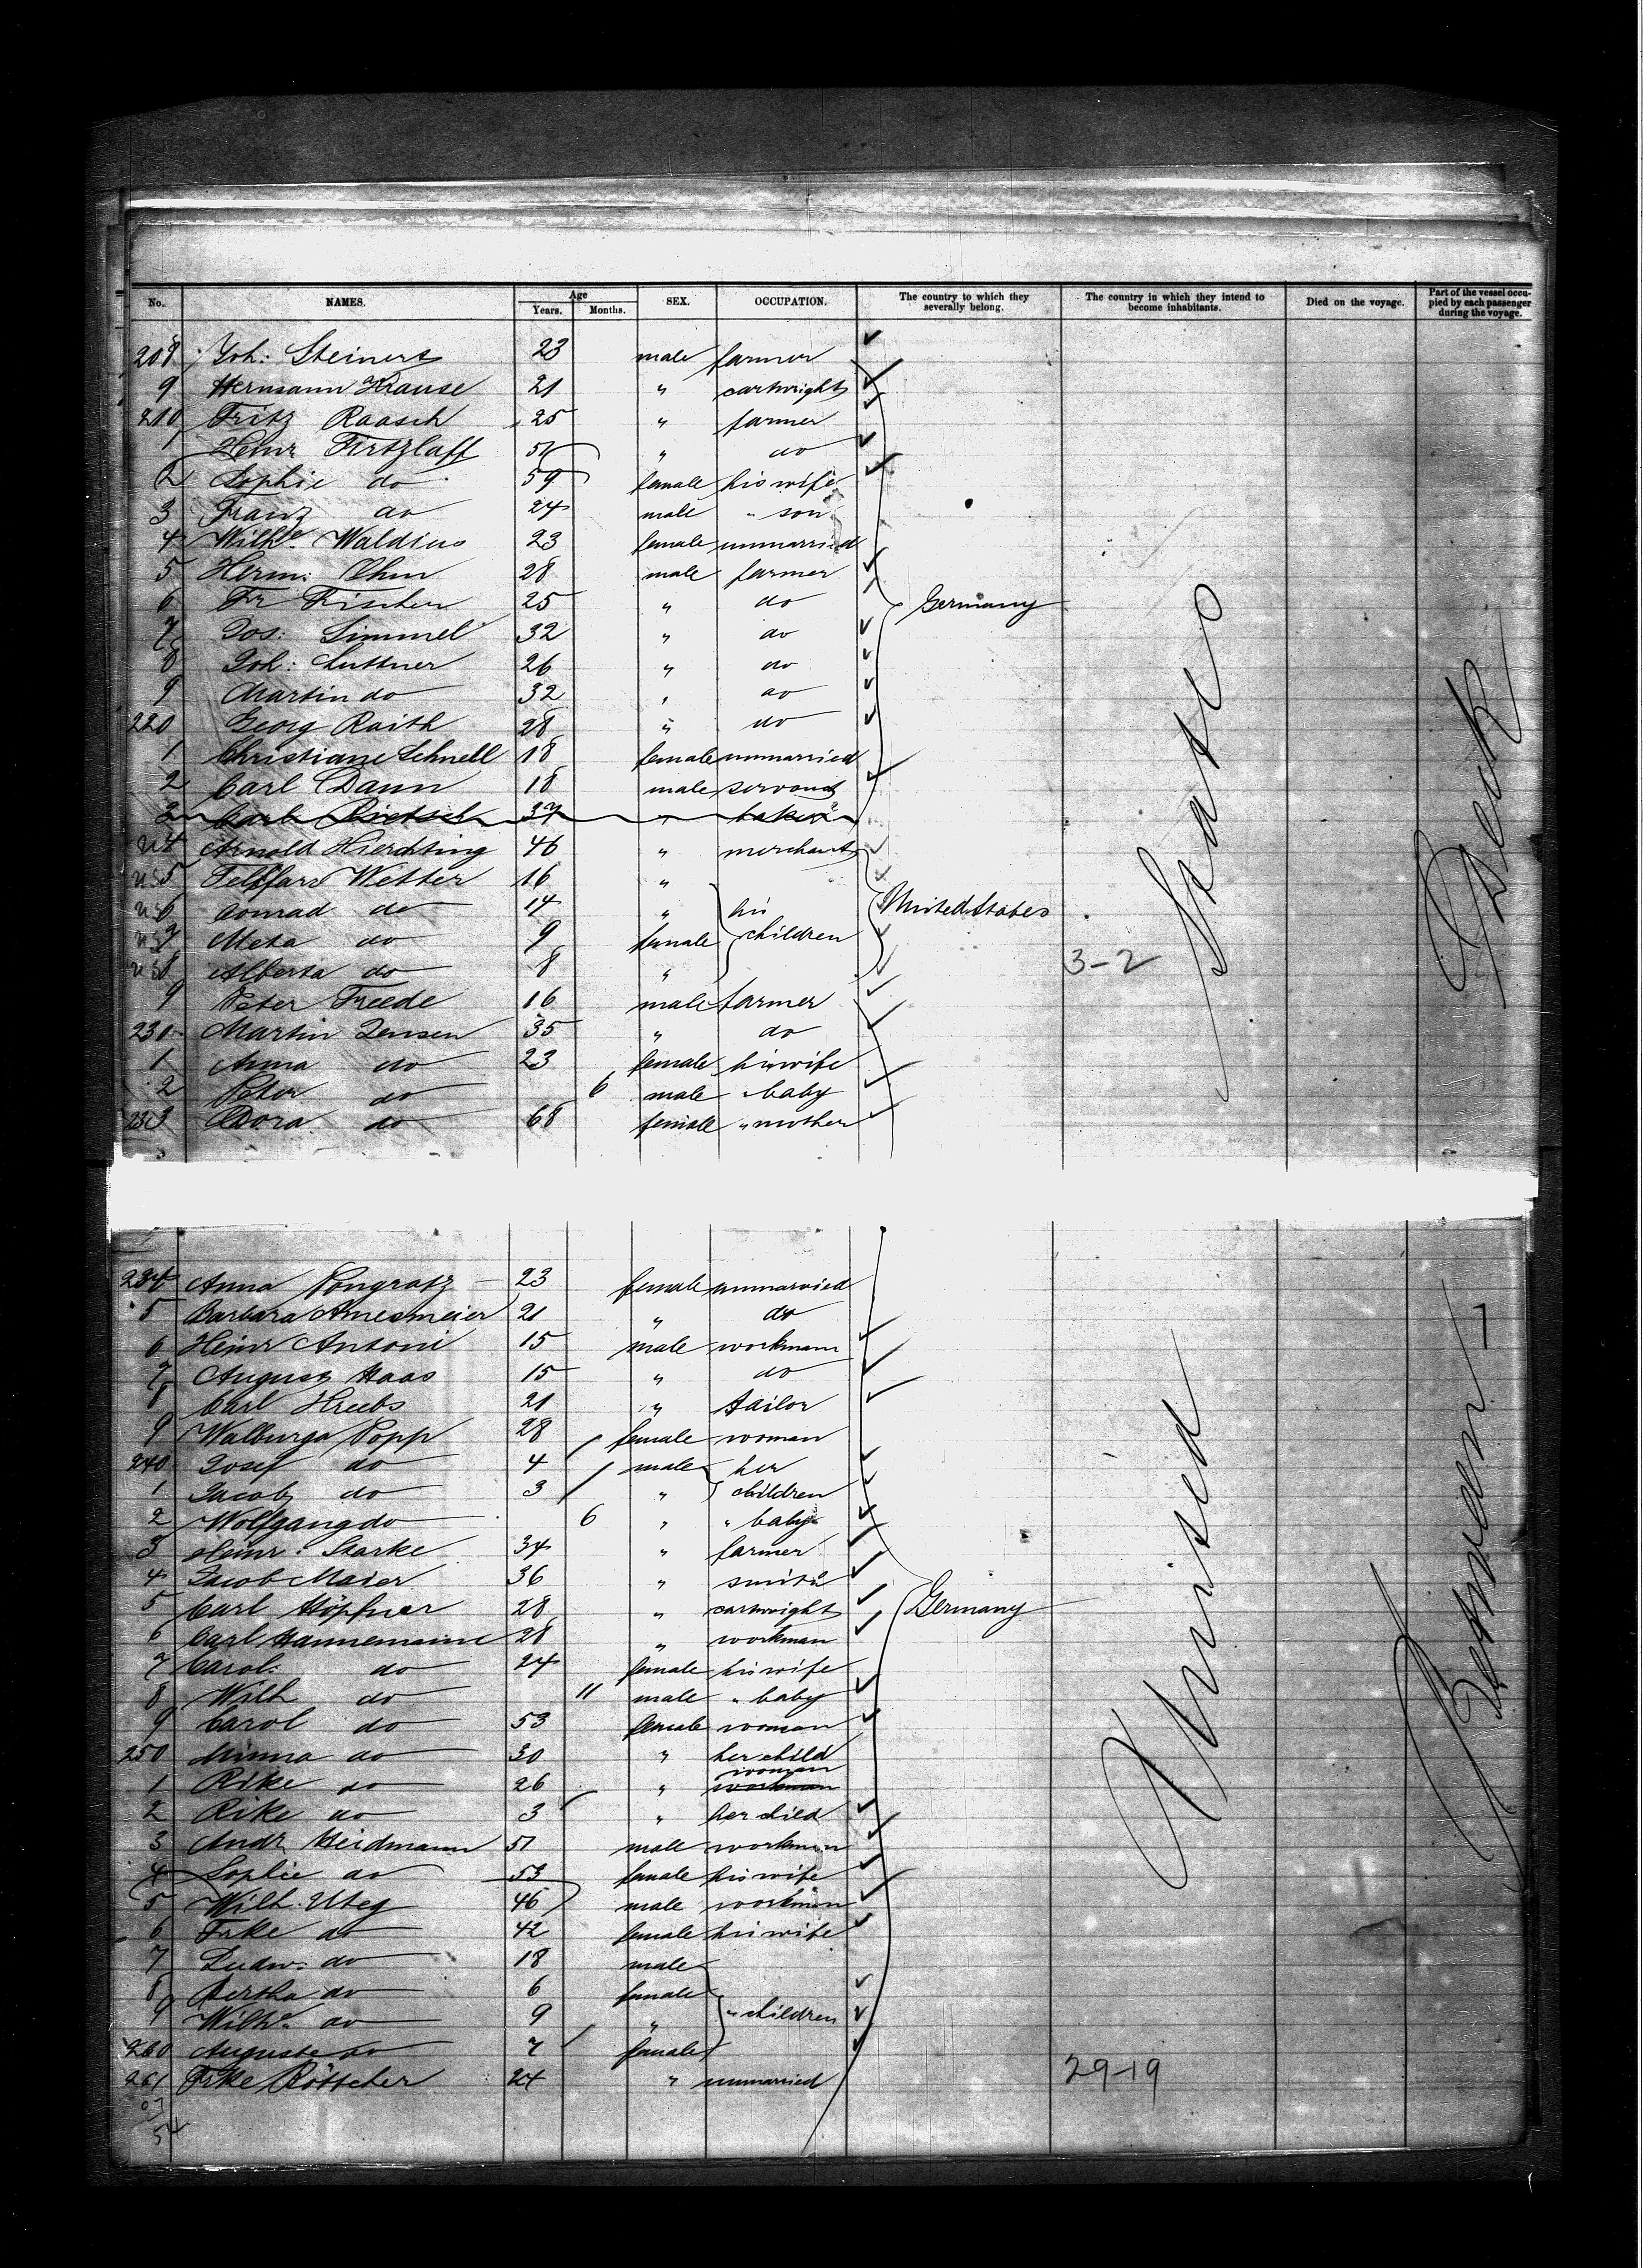 No. NAMES. Age Years. Months. SEX. OCCUPATION. The country to which they severally belong. The country in which they intend to become inhabitants. Died on the voyage. Part of the vessel occupied by each passenger during the voyage.
208 Joh: Steinert 23 male farmer
9 Hermann Krause 21 " cartwright
210 Fritz Raasch 25 " farmer
1 Heinr Firtzlaff 51 " do
2 Sophie do 59 female his wife
3 Franz do 24 male " son
4 Wilhe Waldius 23 female unmarried
5 Herm: Ohm 28 male farmer
6 Fr Fischer 25 " do Germany
7 Jos: Simmel 32 " do
8 Joh: Luttner 26 " do
9 Martin do 32 " do
220 Georg Raith 28 " do
1 Christiane Schnell 18 female unmarried
2 Carl Dann 18 male servant
3 Carl Rietsch 37 " baker
4 Arnold Hierchting 46 " merchant
5 Wetter 16 "
6 Conrad do 14 " his United States
7 Meta do 9 female children
8 Alberta do 8 " 3-2
9 Peter Freede 16 male farmer
230 Martin Jensen 35 " do
1 Anna do 23 female his wife
2 Peter do 6 male " baby
233 Dora do 68 female " mother
States
Deck
234 Anna Pongratz 23 female unmarried
5 Barbara Amesmeier 21 " do
6 Heinr Antoni 15 male workmann
7 August Haas 15 " do
8 Carl Krebs 21 " tailor
9 Walburga Popp 28 female woman
240 Josef do 4 male her
1 Jacob do 3 " children
2 Wolfgang do 6 " " baby
3 Heinr: Starke 34 " farmer
4 Jacob Maier 36 " smith
5 Carl Höpfner 28 " cartwright Germany
6 Carl Hannemann 28 " workman
7 Carol: do 24 female his wife
8 Wilh do 11 male " baby
9 Carol do 53 female woman
250 Minna do 30 " her child
woman
1 Rike do 26 " workman
2 Rike do 3 " her child
3 Andr Heidmann 51 male workman
4 Sophie do 53 female his wife
5 Wilh. Uteg 46 male workman
6 Frke do 42 female his wife
7 Ludw: do 18 male
8 Bertha do 6 female
9 Wilhe do 9 " " children
260 Auguste do 7 female
261 Frke Röttcher 24 " unmarried 29-19
54
United
Between